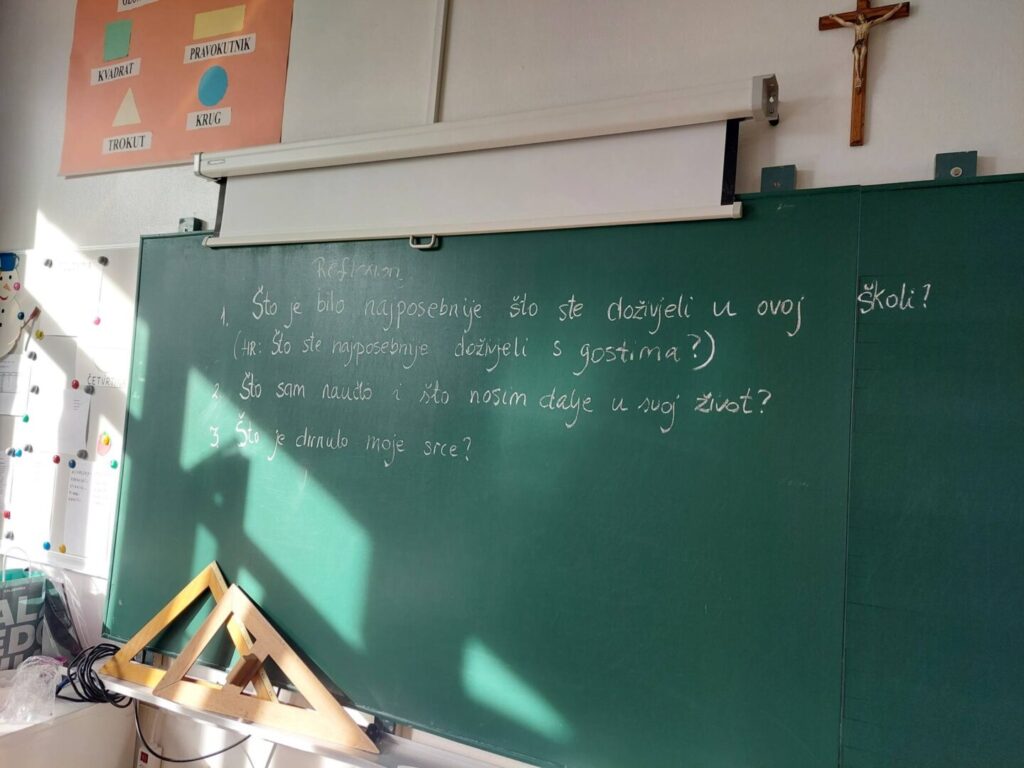 PRAVOKUTNIK
KVADRAT
KRUG
TROKUT
Reflexion
1. Što je bilo najposebnije što ste doživjeli u ovoj školi?
(HR: Što ste najposebnije doživjeli s gostima?)
2. Što sam naučio i što nosim dalje u svoj život?
3. Što je dirnulo moje srce?